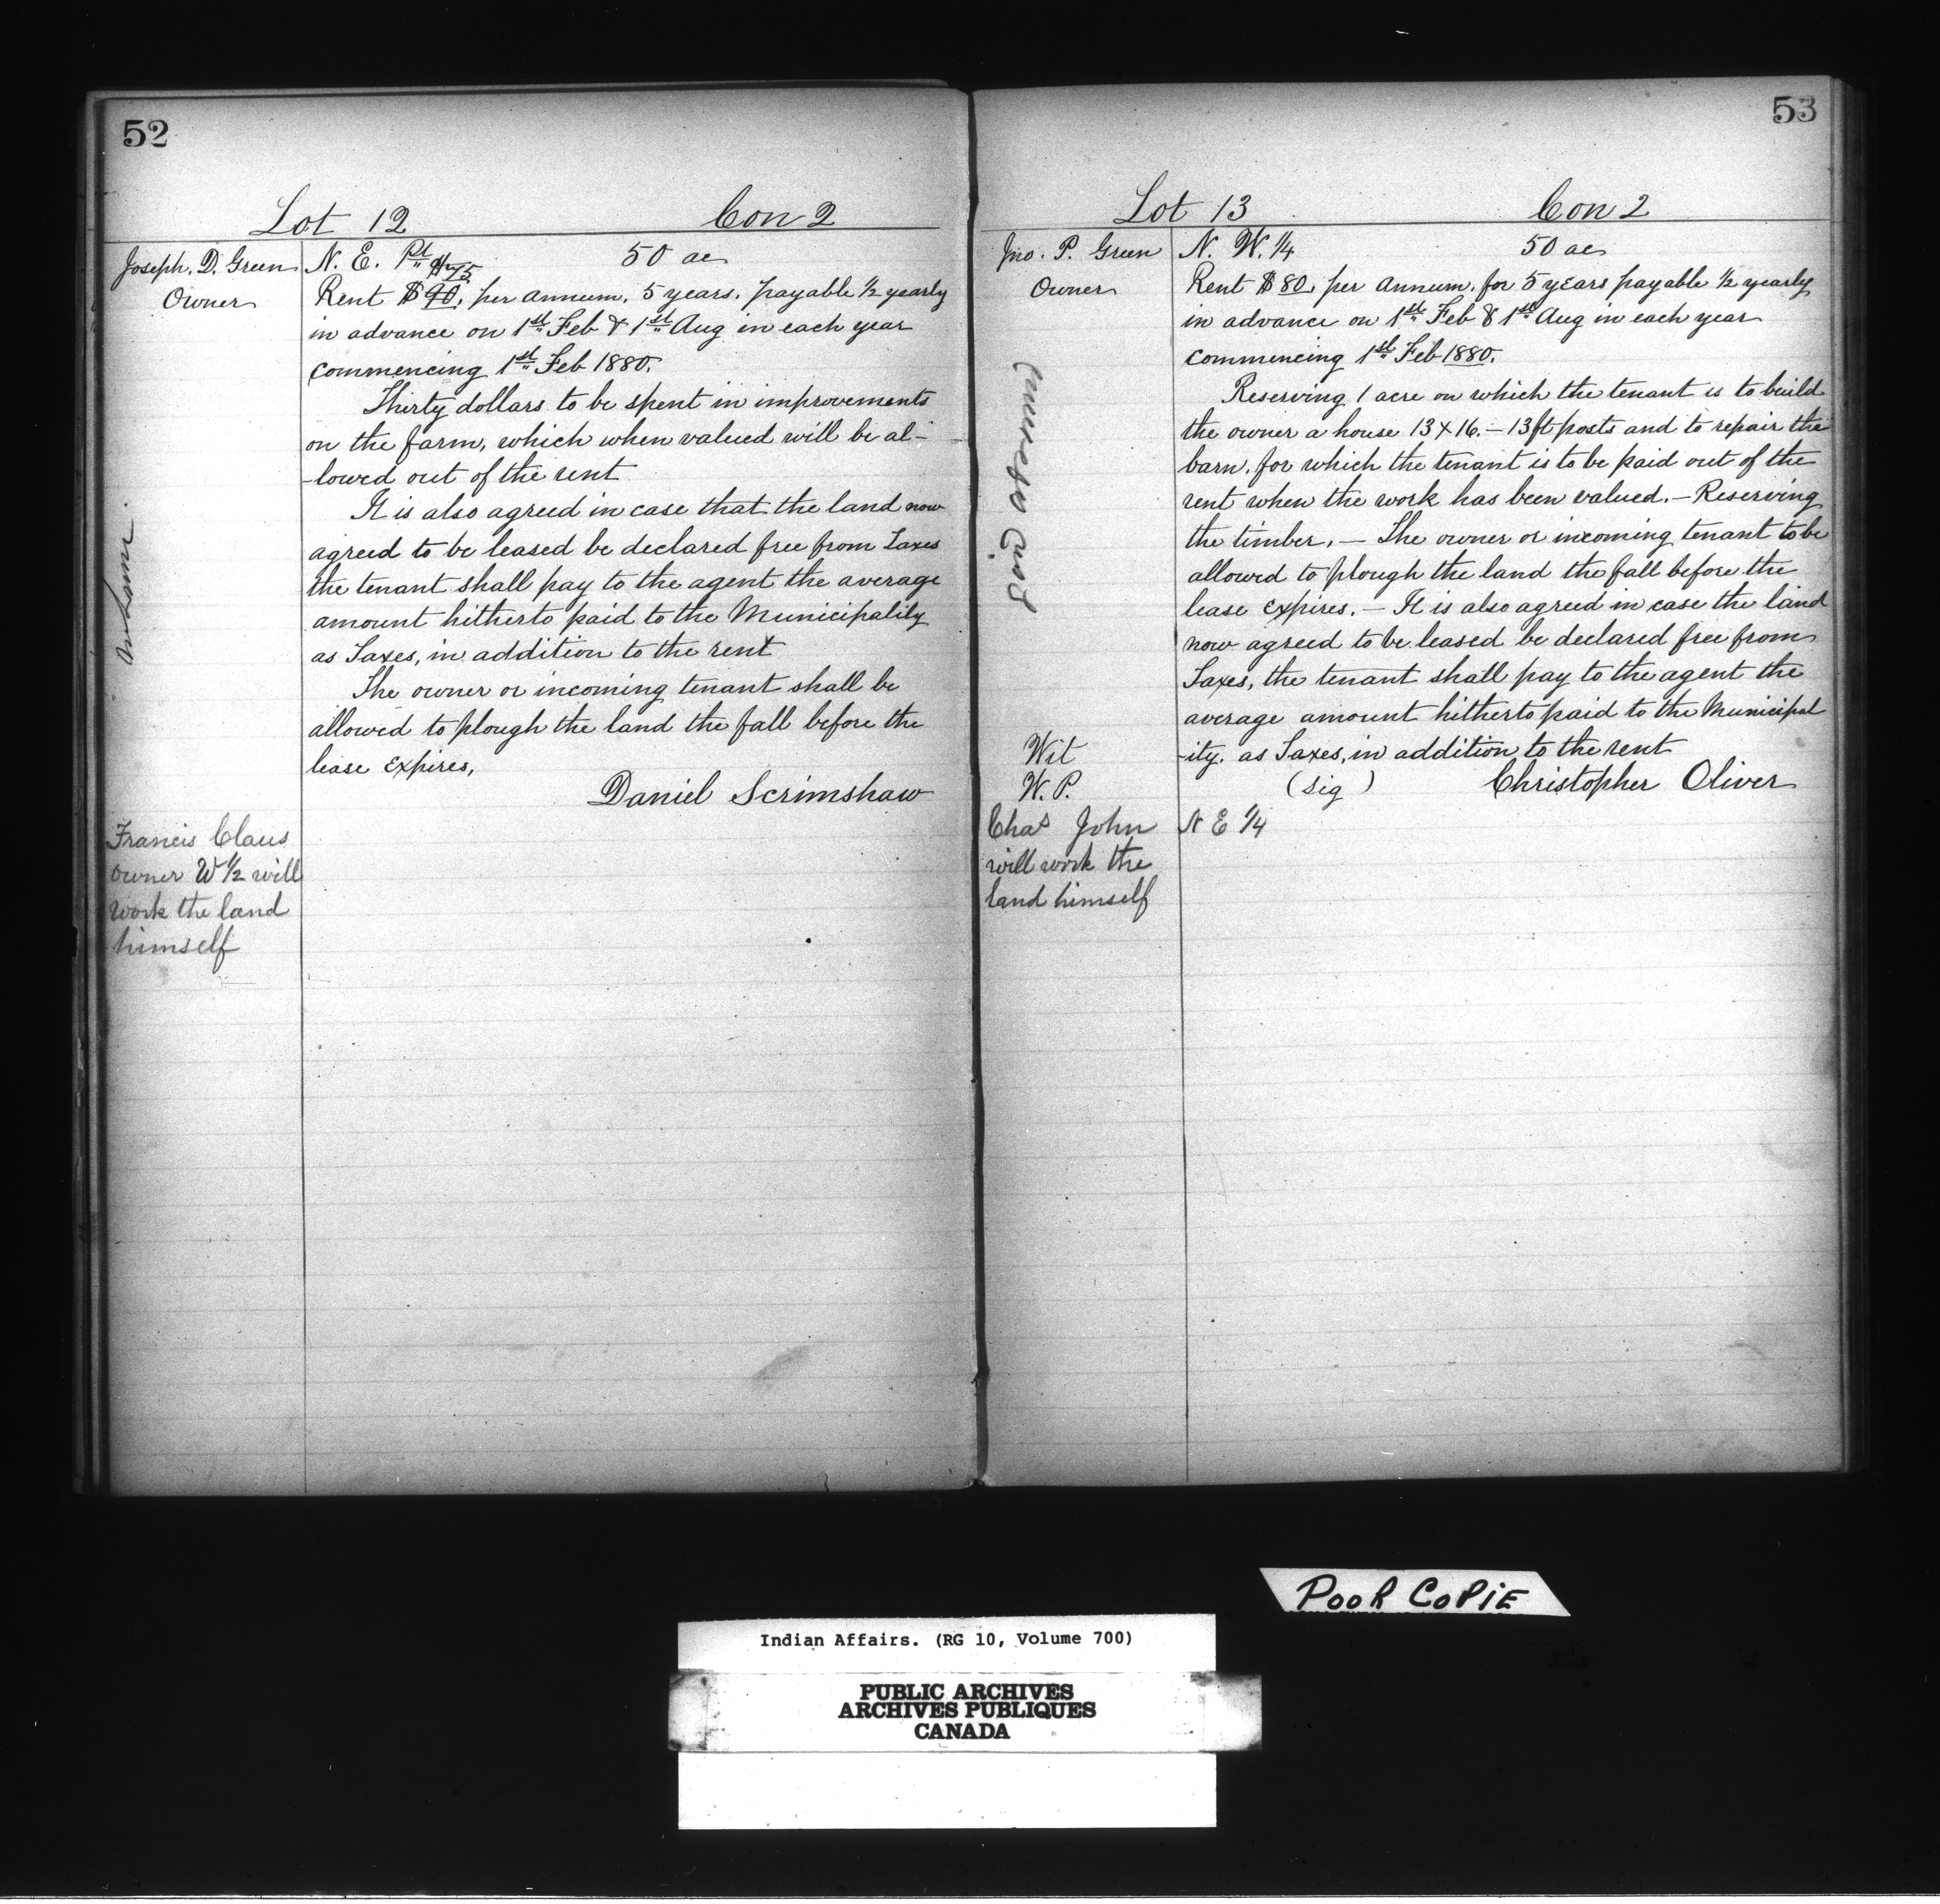 52
Lot 12 Con 2
Joseph. D. Green
Owner
N. E. Pt 50 ac
$75
Rent $90, per annum. 5 years. payable ½ yearly
in advance on 1st Feb & 1st Aug in each year
commencing 1st Feb 1880.
Thirty dollars to be spent in improvements
on the farm, which when valued will be al-
-lowed out of the rent
It is also agreed in case that the land now
agreed to be leased be declared free from Taxes
the tenant shall pay to the agent the average
amount hitherto paid to the Municipality
as Taxes, in addition to the rent
The owner or incoming tenant shall be
allowed to plough the land the fall before the
lease expires,
Daniel Scrimshaw
Francis Claus
owner W ½ will
work the land
himself
53
Lot 13 Con 2
Jno. P. Green
Owner
N. W. ¼ 50 ac
Rent $80, per annum. for 5 years payable ½ yearly
in advance on 1st Feb & 1st Aug in each year
commencing 1st Feb 1880.
Reserving 1 acre on which the tenant is to build
the owner a house 13 x 16. – 13 ft posts and to repair the
barn. for which the tenant is to be paid out of the
rent when the work has been valued. – Reserving
the timber. – The owner or incoming tenant to be
allowed to plough the land the fall before the
lease expires. – It is also agreed in case the land
now agreed to be leased be declared free from
Taxes, the tenant shall pay to the agent the
average amount hitherto paid to the Municipal
-ity. as Taxes, in addition to the rent
Wit
W. P.
(Sig) Christopher Oliver
Chas John
will work the
land himself
N E ¼
POOR COPIE
Indian Affairs. (RG 10, Volume 700)
PUBLIC ARCHIVES
ARCHIVES PUBLIQUES
CANADA